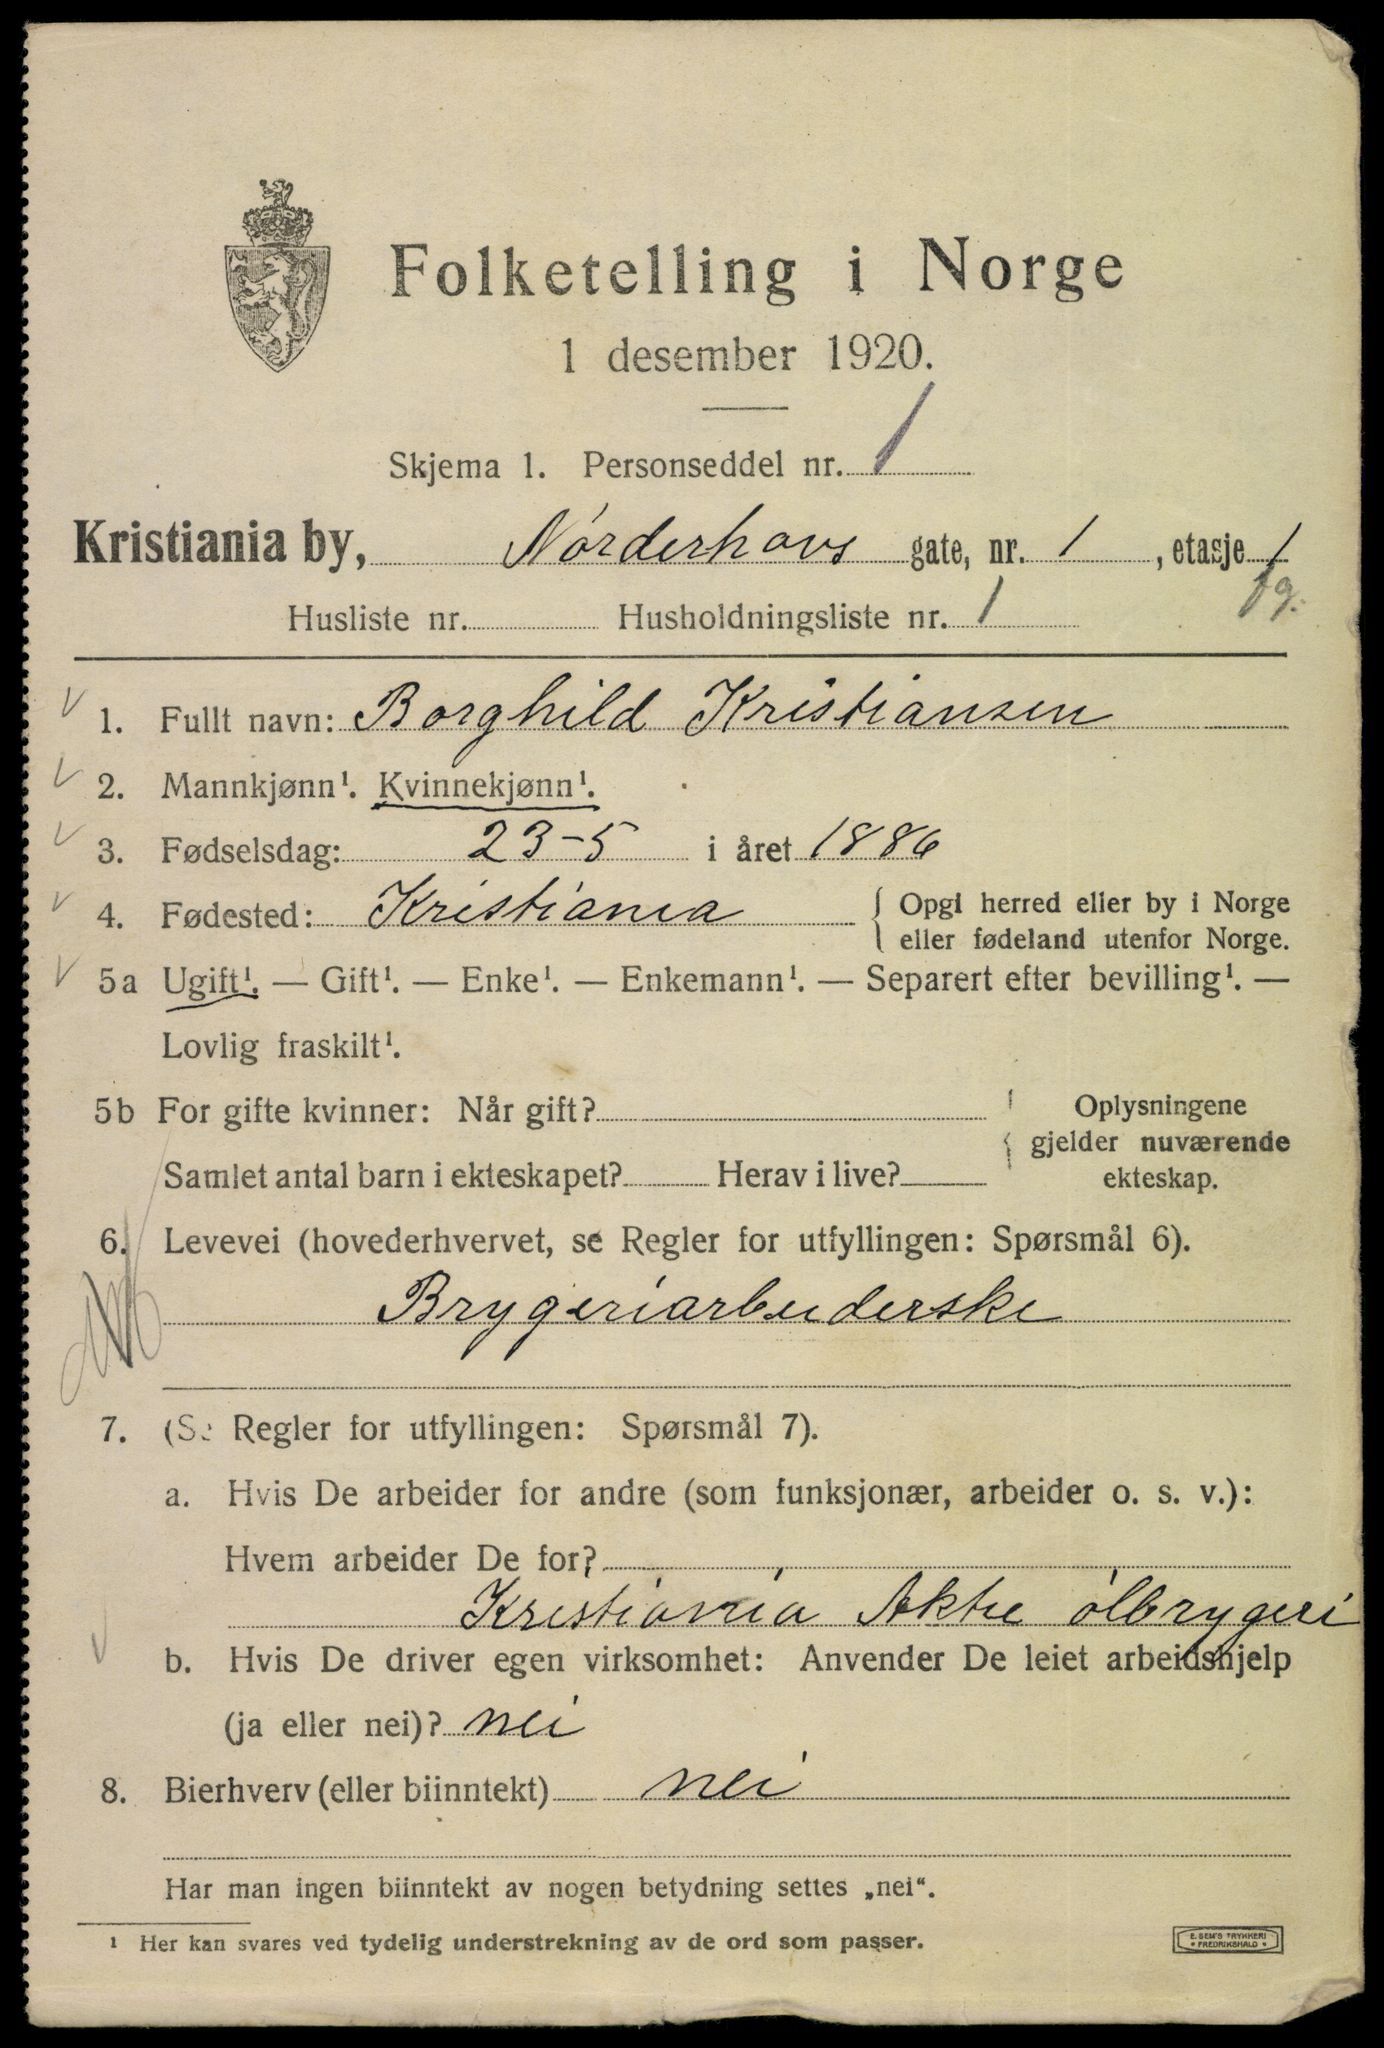 Folketelling i Norge
1 desember 1920.
Skjema 1. Personseddel nr. 1
Kristiania by, Norderhovs gate, nr. 1, etasje 1
Husliste nr. Husholdningsliste nr. 1 fg.
1. Fullt navn: Borghild Kristiansen
2. Mannkjønn¹. Kvinnekjønn¹.
3. Fødselsdag: 23-5 i året 1886
4. Fødested: Kristiania { Opgi herred eller by i Norge
eller fødeland utenfor Norge.
5a Ugift¹. — Gift¹. — Enke¹. — Enkemann¹. — Separert efter bevilling¹. —
Lovlig fraskilt¹.
5b For gifte kvinner: Når gift? { Oplysningene
gjelder nuværende
Samlet antal barn i ekteskapet? Herav i live? ekteskap.
6. Levevei (hovederhvervet, se Regler for utfyllingen: Spørsmål 6).
Brygeriarbeiderske
7. (Se Regler for utfyllingen: Spørsmål 7).
a. Hvis De arbeider for andre (som funksjonær, arbeider o. s. v.):
Hvem arbeider De for?
Kristiania Aktie ølbrygeri
b. Hvis De driver egen virksomhet: Anvender De leiet arbeidshjelp
(ja eller nei)? nei
8. Bierhverv (eller biinntekt) nei
Har man ingen biinntekt av nogen betydning settes „nei“.
¹ Her kan svares ved tydelig understrekning av de ord som passer.
E. SEM'S TRYKKERI
FREDRIKSHALD